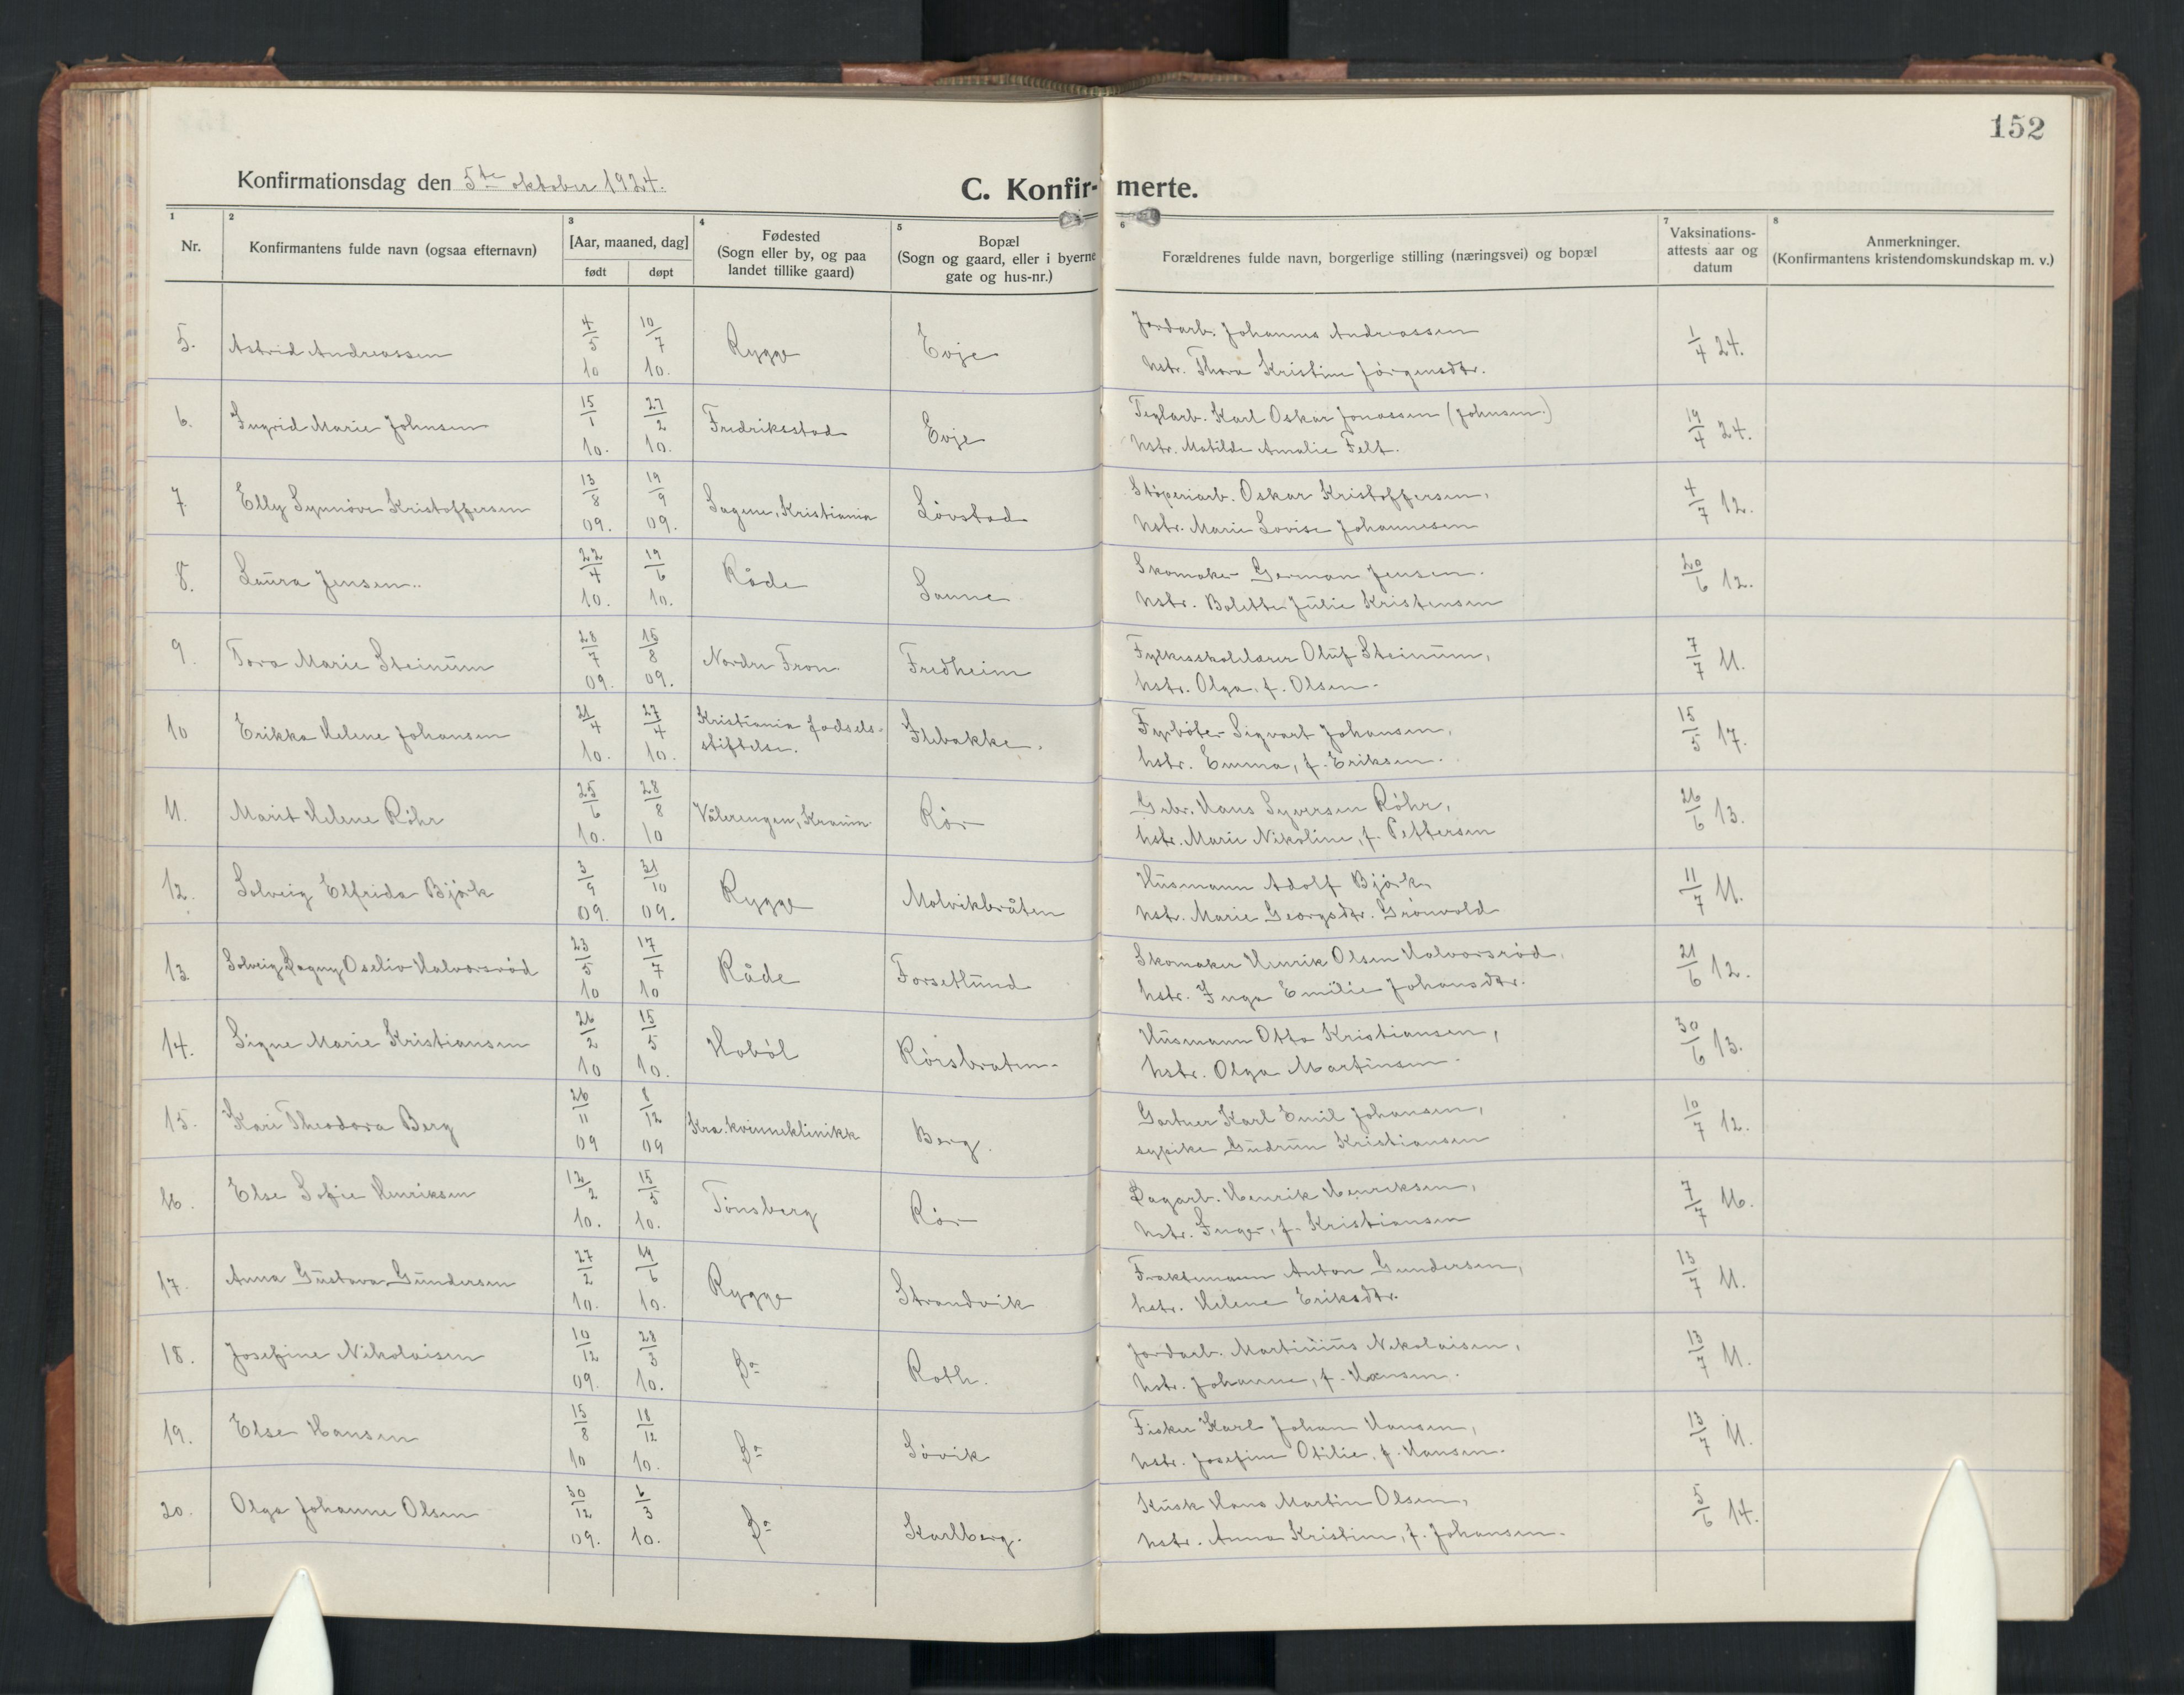 152
Konfirmationsdag den 5te oktober 1924.
C. Konfir- merte.
1 2 3 4 5 6 7 8
Nr.
Konfirmantens fulde navn (ogsaa efternavn)
[Aar, maaned, dag]
født døpt
Fødested
(Sogn eller by, og paa
landet tillike gaard)
Bopæl
(Sogn og gaard, eller i byerne
gate og hus-nr.)
Forældrenes fulde navn, borgerlige stilling (næringsvei) og bopæl
Vaksinations-
attests aar og
datum
Anmerkninger.
(Konfirmantens kristendomskundskap m. v.)
5. Astrid Andreassen 4/5 10 10/7 10. Rygge Evje Jordarb. Johannes Andreassen 1/4 24.
hstr. Thora Kristine Jörgensdtr.
6. Ingrid Marie Johnsen 15/1 10. 27/2 10. Fredriksstad Evje Teglarb. Karl Oskar Jonassen (Johnsen.) 19/4 24.
hstr. Matilde Amalie Felt.
7. Elly Synnöve Kristoffersen 13/8 09. 19/9 09. Sagene, Kristiania Lövstad Stöperiarb. Oskar Kristoffersen, 4/7 12.
hstr. Marie Lovise Johannesen
8. Laura Jensen.. 22/4 10. 19/6 10. Råde Sanne Skomaker German Jensen. 20/6 12.
hstr. Bolette Julie Kristensen
9. Tora Marie Steinum 28/7 09. 15/8 09. Nordre Fron Fredheim Fylkesskolelærer Oluf Steinum, 7/7 11.
hstr. Olga, f. Olsen.
10 Erikka Helene Johansen 21/4 10. 27/4 10. Kristiania fødsels-
stiftelse. Flebakke. Fyrböter Sigvart Johansen, 15/5 17.
hstr. Emma, f. Eriksen.
11. Marit Helene Röhr 25/6 10. 28/8 10 Vålerengen, Krania Rör Grbr. Hans Syversen Röhr, 26/6 13.
hstr. Marie Nikoline, f. Pettersen
12. Solveig Elfrida Björk 3/9 09. 31/10 09. Rygge Molvikbråten Husmann Adolf Björk 11/7 11.
hstr. Marie Georgsdtr. Grönvold
13. Solveig Dagny Oseliv Halvorsröd 23/5 10 17/7 10 Råde Forsetlund Skomaker Henrik Olsen Halvorsröd, 21/6 12.
hstr. Inga Emilie Johansdtr.
14. Signe Marie Kristiansen 26/2 10 15/5 10. Hoböl Rörsbraten. Husmann Otto Kristiansen, 30/6 13.
hstr. Olga Martinsen.
15. Kari Theodora Berg 26/11 09 8/12 09 Kra. kvinneklinikk Berg. Gartner Karl Emil Johansen, 10/7 12.
sypike Gudrun Kristiansen
16. Else Sofie Henriksen 12/2 10. 15/5 10. Tönsberg Rör Dagarb. Henrik Henriksen, 7/7 16.
hstr. Inger, f. Kristiansen
17. Anna Gustava Gundersen 27/2 10. 19/6 10. Rygge Strandvik Fraktemann Anton Gundersen, 13/7 11.
hstr. Helene Eriksdtr.
18. Josefine Nikolaisen 10/12 09. 28/3 10. Do Roth. Jordarb. Martinius Nikolaisen, 13/7 11.
hstr. Johanne, f. Hansen.
19. Else Hansen 15/8 10 18/12 10. Do Sövik Fisker Karl Johan Hansen, 13/7 11.
hstr. Josefine Otilie, f. Hansen.
20. Olga Johanne Olsen 30/12 09. 6/3 10. Do Karlberg. Kusk Hans Martin Olsen, 5/6 14.
hstr. Anna Kristine, f. Johansen.